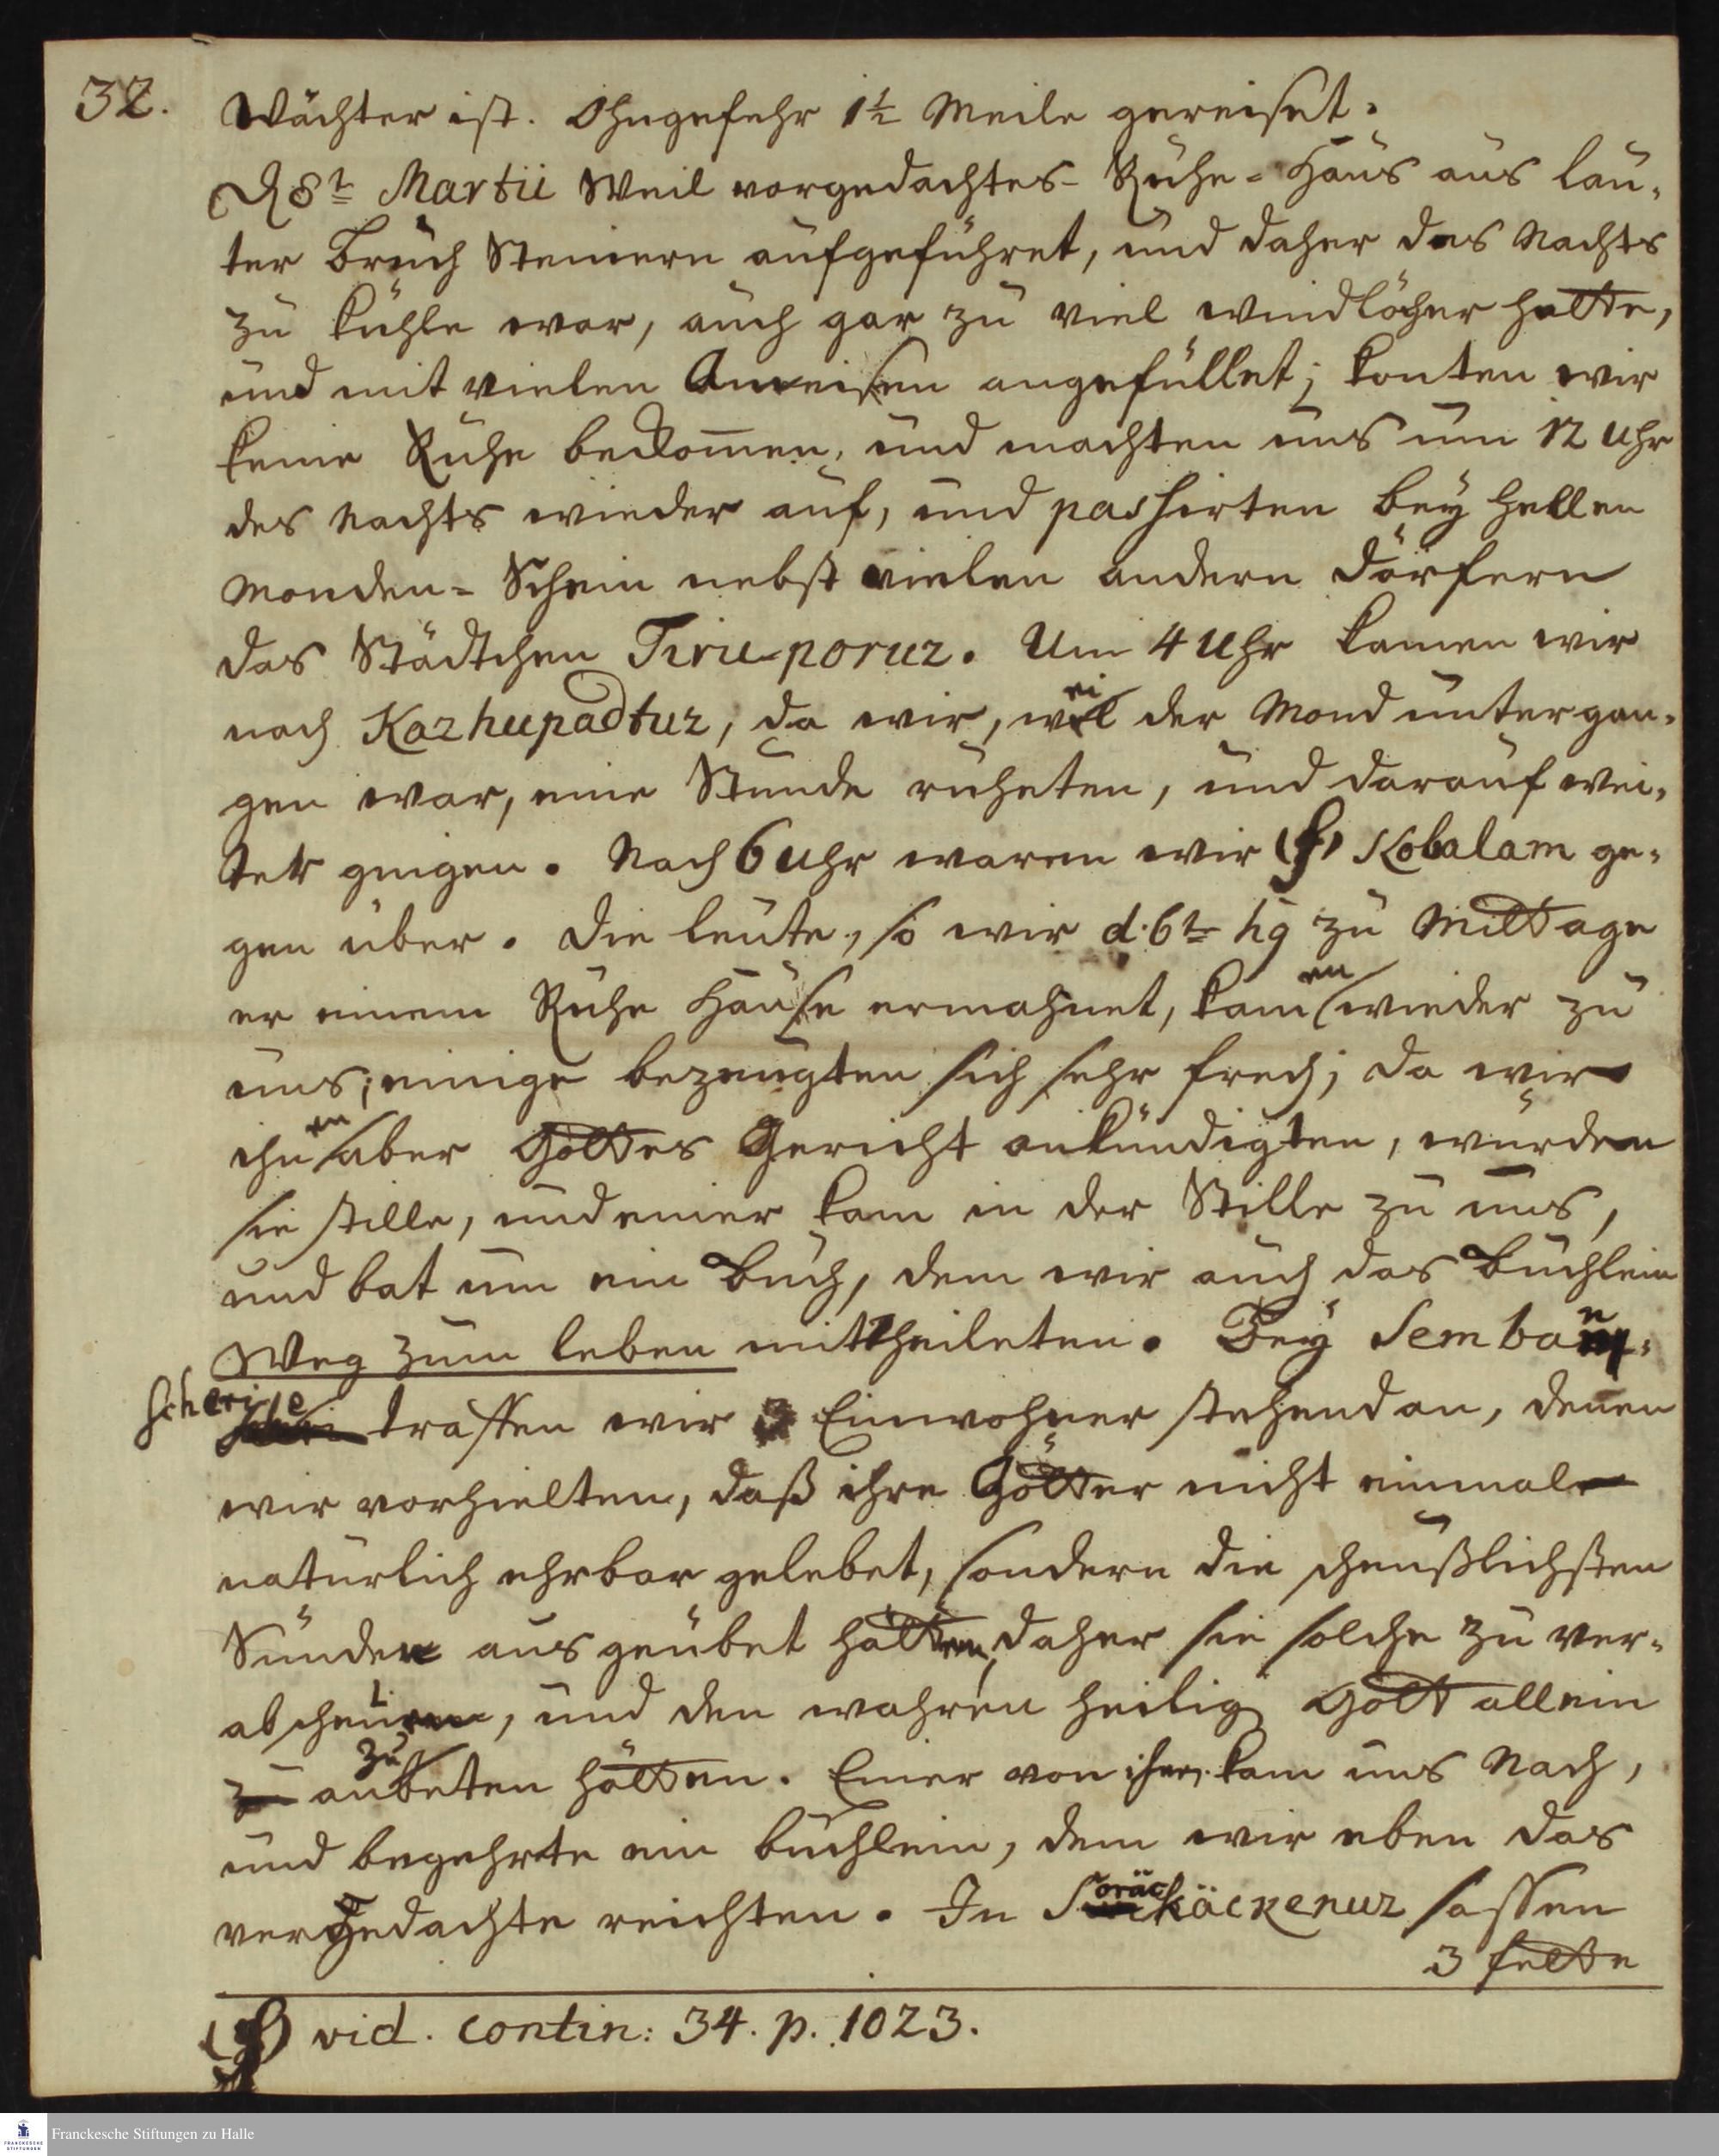 32.
Wächter ist. Ohngefehr 1½ Meile gereiset.
D 8t. Martii Weil vorgedachtes Ruhe-Haus aus lau-
ter Bruch Steinern aufgeführet, und daher des Nachts
zu kühle war, auch gar zu viel windlöcher hatte,
und mit vielen Ameisen angefüllet; konten wir
keine Ruhe bekom̄en, und machten uns um 12 Uhr
des Nachts wieder auf, und passirten bey hellen
Monden-Schein nebst vielen andern Dörfern
das Städtchen Tiru-poruz. Um 4 Uhr kamen wir
nach Kazhupadtuz, da wir, weil der Mond untergan-
gen war, eine Stunde ruheten, und darauf wei-
ter gingen. Nach 6 Uhr waren wir (f) Kobalam ge-
gen über. Die leute, so wir d. 6t hg zu Mittage
er einem Ruhe Hause ermahnet, kamen wieder zu
uns; einige bezeugten sich sehr frech; da wir
ihnen aber Gottes Gericht ankündigten, wurden
sie stille, und einer kam in der Stille zu uns,
und bat um ein Buch, dem wir auch das Büchlein
Weg zum leben mittheileten. Bey Semban-
scherie traffen wir 3 Einwohner stehend an, denen
wir vorhielten, daß ihre Götter nicht einmal
natürlich ehrbar gelebet, sondern die scheußlichsten
Sünden ausgeübet hätten, daher sie solche zu ver-
abscheuen, und den wahren heilig Gott allein
anzubeten hätten. Einer von ihnen kam uns Nach,
und begehrte ein büchlein, dem wir eben das
vergedachte reichten. In Soräckäckenuz sassen
3 fette
(f) vid. contin: 34. p. 1023.
Franckesche Stiftungen zu Halle
FRANCKESCHE STIFTUNGEN